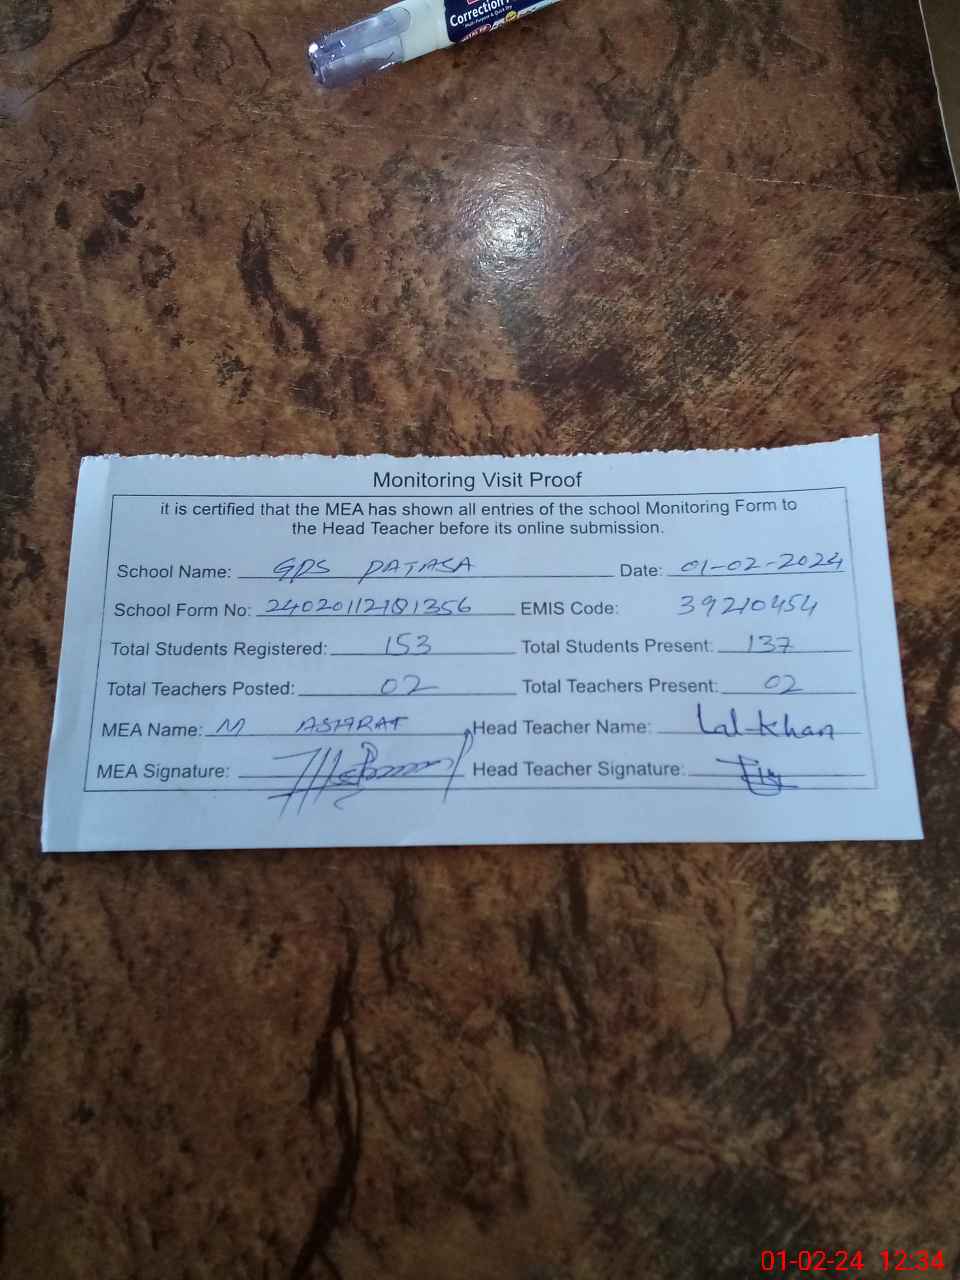 Correction
Multi-Purpose & Quick Dry
METAL TIP
Monitoring Visit Proof
it is certified that the MEA has shown all entries of the school Monitoring Form to
the Head Teacher before its online submission.
School Name: GPS PATASA Date: 01-02-2024
School Form No: EMIS Code: 39210454
Total Students Registered: 153 Total Students Present: 137
Total Teachers Posted: 02 Total Teachers Present: 02
MEA Name: M ASHRAF Head Teacher Name: Lal Khan
MEA Signature: Head Teacher Signature:
01-02-24 12:34